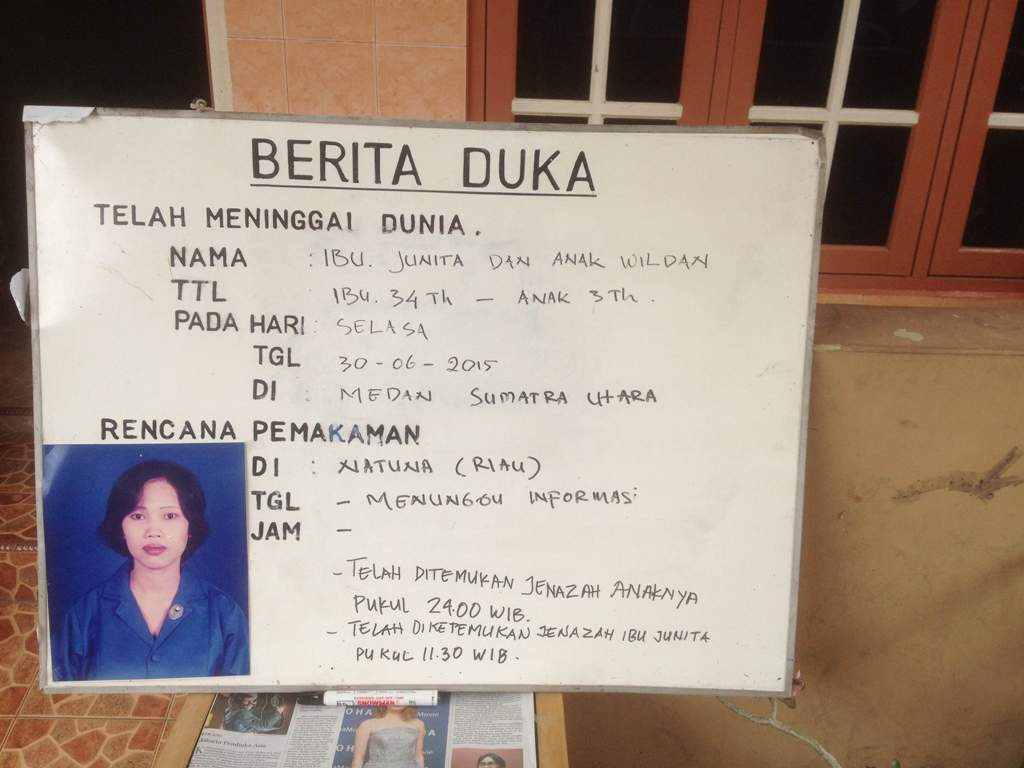 BERITA DUKA
TELAH MENINGGAL DUNIA.
NAMA : IBU. JUNITA DAN ANAK WILDAN
TTL : IBU. 34 Th - ANAK 3 Th.
PADA HARI : SELASA
TGL 30-06-2015
DI : MEDAN SUMATRA UTARA
RENCANA PEMAKAMAN
DI : NATUNA (RIAU)
TGL - MENUNGGU INFORMASI
JAM -
- TELAH DITEMUKAN JENAZAH ANAKNYA
PUKUL 24.00 WIB.
- TELAH DIKETEMUKAN JENAZAH IBU JUNITA
PUKUL 11.30 WIB.
SNOWMAN
Jakarta Pembuka Asia